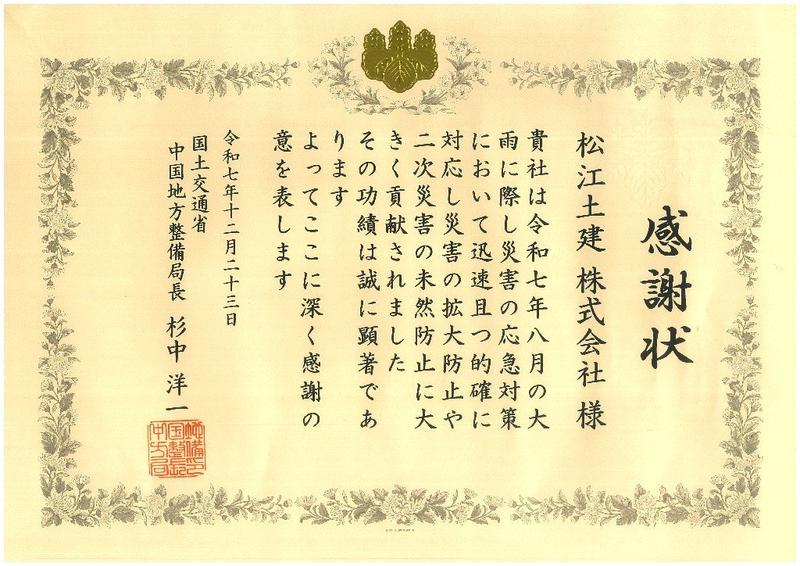 感謝状
松江土建 株式会社 様
貴社は令和七年八月の大
雨に際し災害の応急対策
において迅速且つ的確に
対応し災害の拡大防止や
二次災害の未然防止に大
きく貢献されました
その功績は誠に顕著であ
ります
よってここに深く感謝の
意を表します
令和七年十二月二十三日
国土交通省
中国地方整備局長 杉中 洋一